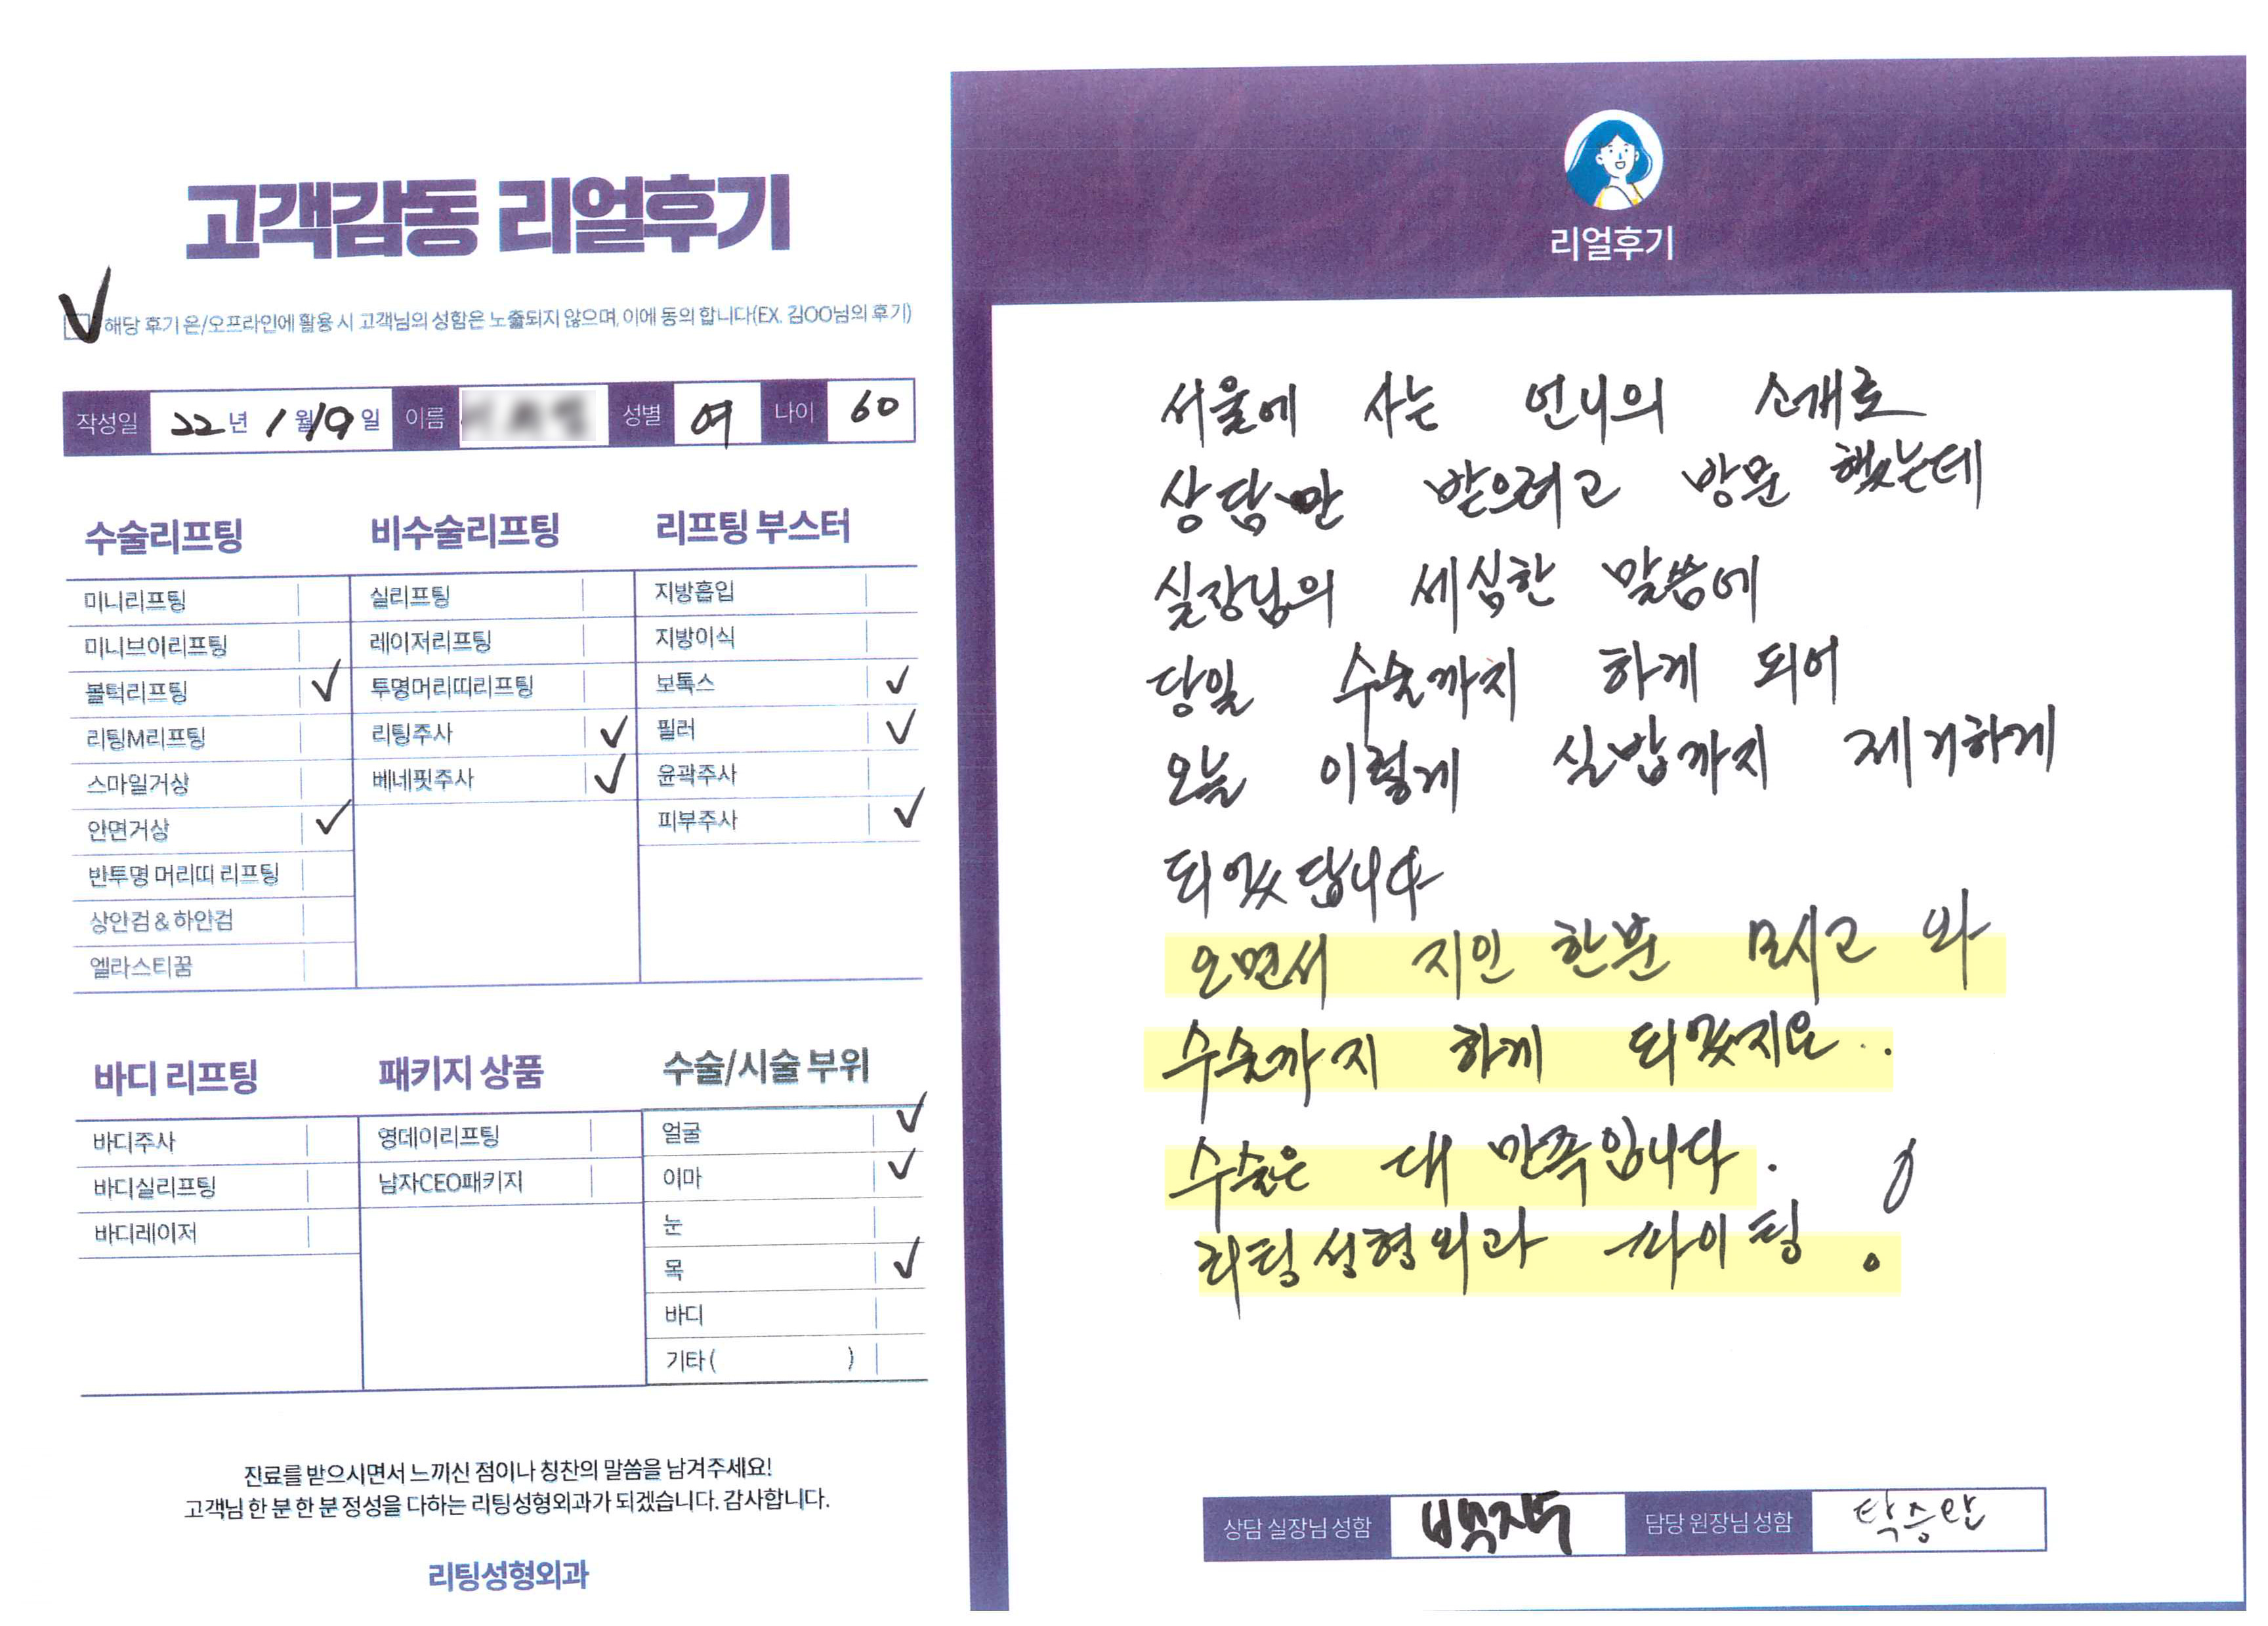 고객감동 리얼후기
해당 후기 온/오프라인에 활용 시 고객님의 성함은 노출되지 않으며, 이에 동의 합니다(EX. 김OO님의 후기)
작성일 22년 1월 19일 이름 성별 여 나이 60
수술리프팅
미니리프팅
미니브이리프팅
볼턱리프팅 ✓
리팅M리프팅
스마일거상
안면거상 ✓
반투명 머리띠 리프팅
상안검 & 하안검
엘라스티꿈
비수술리프팅
실리프팅
레이저리프팅
투명머리띠리프팅
리팅주사 ✓
베네핏주사 ✓
리프팅 부스터
지방흡입
지방이식
보톡스 ✓
필러 ✓
윤곽주사
피부주사 ✓
바디 리프팅
바디주사
바디실리프팅
바디레이저
패키지 상품
영데이리프팅
남자CEO패키지
수술/시술 부위
얼굴 ✓
이마 ✓
눈
목 ✓
바디
기타 ( )
진료를 받으시면서 느끼신 점이나 칭찬의 말씀을 남겨주세요!
고객님 한 분 한 분 정성을 다하는 리팅성형외과가 되겠습니다. 감사합니다.
리팅성형외과
리얼후기
서울에 사는 언니의 소개로
상담만 받으려고 방문 했는데
실장님의 세심한 말씀에
당일 수술까지 하게 되어
오늘 이렇게 실밥까지 제거하게
되었답니다
오면서 지인 한분 모시고 와
수술까지 하게 되었지요..
수술은 대 만족입니다.
리팅성형외과 파이팅!
상담 실장님 성함 담당 원장님 성함 탁승만